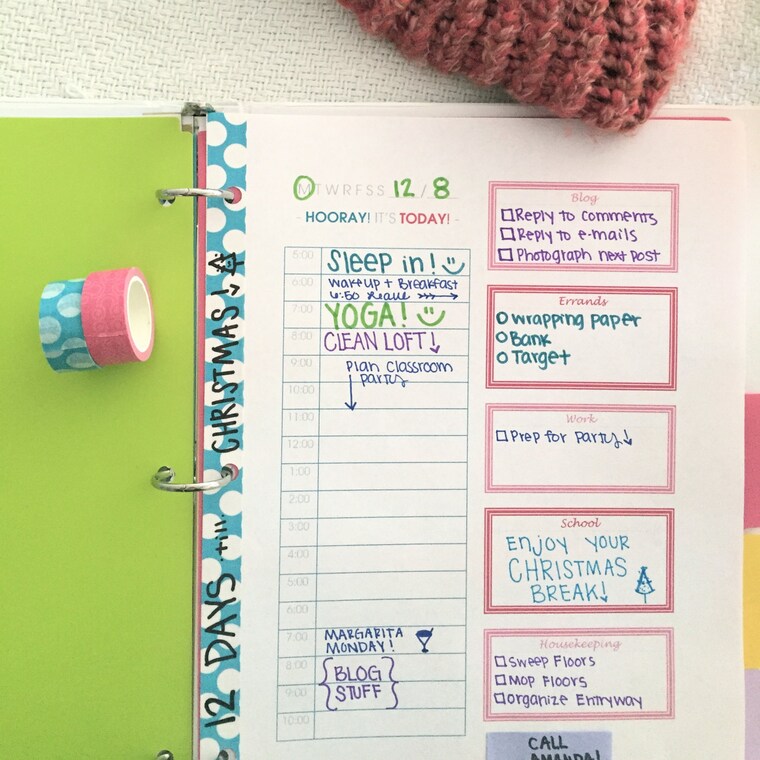 12 DAYS till... CHRISTMAS!
MTWRFSS 12/8
- HOORAY! IT'S TODAY! -
5:00 Sleep in!
6:00 wake up + Breakfast
6:50 leave
7:00 YOGA!
8:00 CLEAN LOFT!
9:00 plan classroom
party
10:00
11:00
12:00
1:00
2:00
3:00
4:00
5:00
6:00
7:00 MARGARITA
MONDAY!
8:00 BLOG
9:00 STUFF
10:00
Blog
Reply to comments
Reply to e-mails
Photograph next post
Errands
wrapping paper
Bank
Target
Work
Prep for party!
School
ENJOY YOUR
CHRISTMAS
BREAK!
Housekeeping
Sweep Floors
Mop Floors
organize Entryway
CALL
AMANDA!